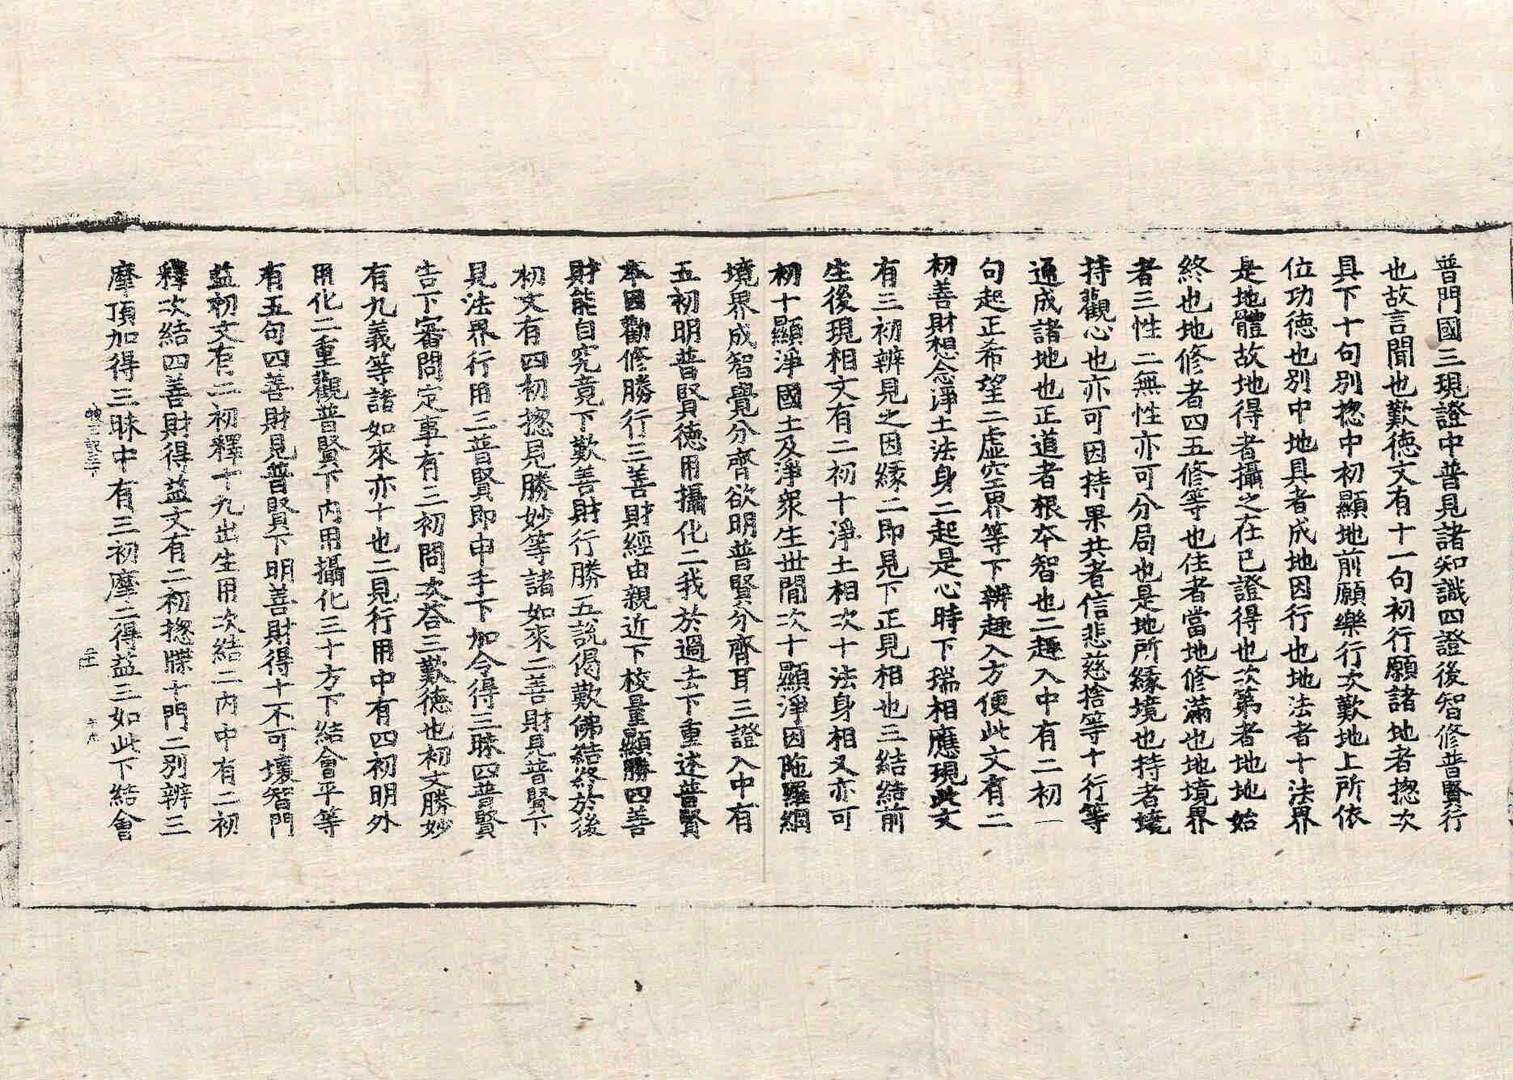 普門國三現證中普見諸知識四證後智修普賢行
也故言聞也歎徳文有十一句初行願諸地者揔次
具下十句別揔中初顯地前願樂行次歎地上所依
位功徳也別中地具者成地因行也地法者十法界
是地體故地得者攝之在已證得也次第者地地始
終也地修者四五修等也住者當地修滿也地境界
者三性二無性亦可分局也是地所緣境也持者境
持觀心也亦可因持果共者信悲慈捨等十行等
通成諸地也正道者根夲智也二趣入中有二初一
句起正希望二虛空界等下辨趣入方便此文有二
初善財想念淨土法身二起是心時下瑞相應現此文
有三初辨見之因緣二即見下正見相也三結結前
生後現相文有二初十淨土相次十法身相又亦可
初十顯淨國土及淨衆生世間次十顯淨因陁羅網
境界成智覺分齊欲明普賢分齊耳三證入中有
五初明普賢徳用攝化二我於過去下重述普賢
夲因勸修勝行三善財經由親近下校量顯勝四善
財能自究竟下歎善財行勝五說偈歎佛結終於後
初文有四初揔見勝妙等諸如來二善財見普賢下
見法界行用三普賢即申手下加令得三昧四普賢
告下審問定事有三初問次荅三歎徳也初文勝妙
有九義等諸如來亦十也二見行用中有四初明外
用化二重觀普賢下內用攝化三十方下結會平等
有五句四善財見普賢下明善財得十不可壞智門
益初文有二初釋十九出生用次結二內中有二初
釋次結四善財得益文有二初揔牒十門二別辨三
摩頂加得三昧中有三初摩二得益三如此下結會